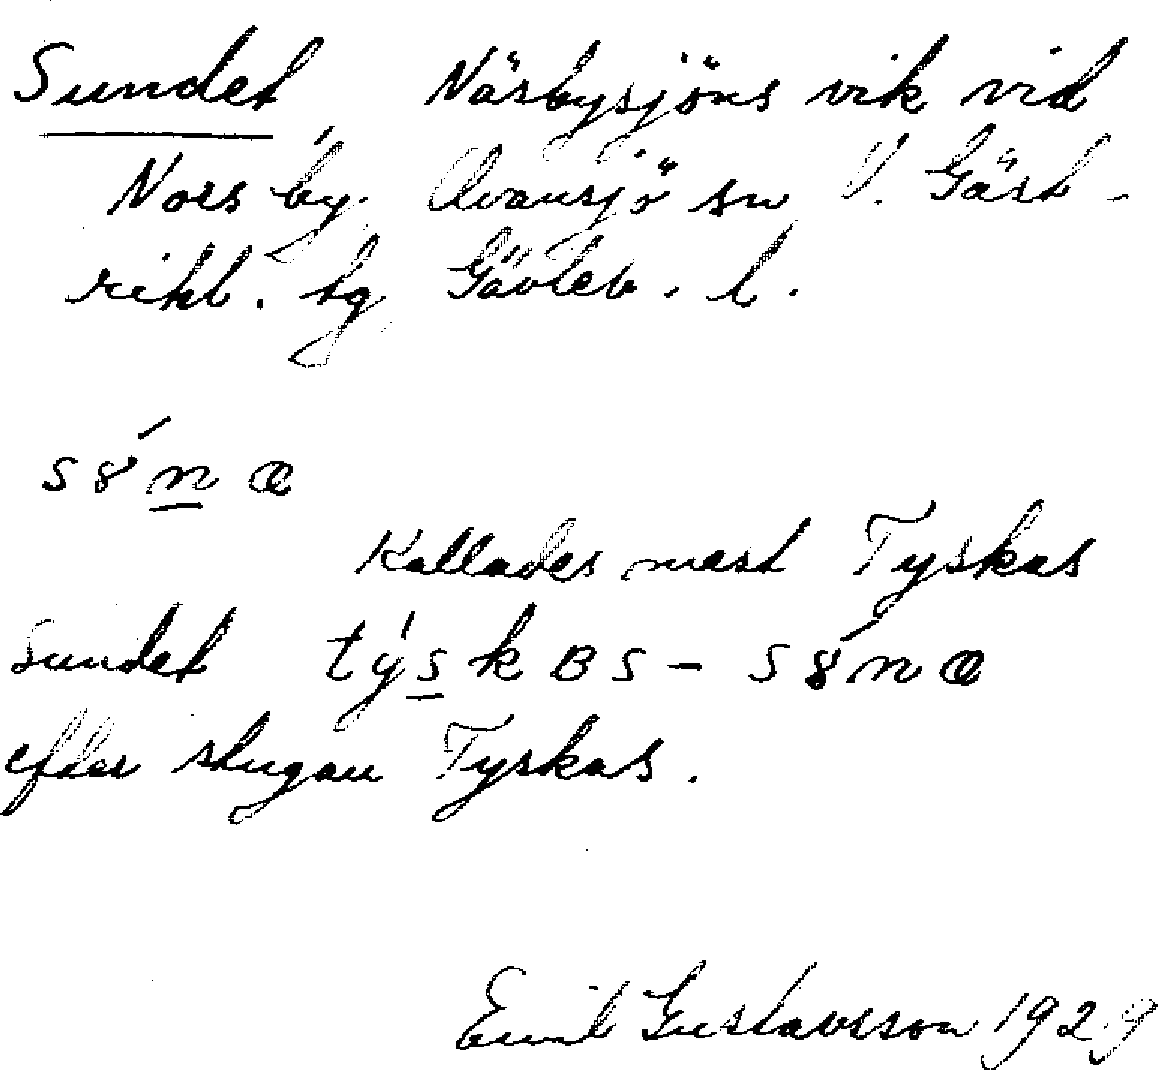 Sundet Näsbysjöns vik vid
Nors by. Ovansjö sn V. Gäst-
rikl. hg Gävleb. l.
s8́n̲œ
Kallades mest Tyskas
Sundet týs̲kʙs-s8́nœ
efter stugan Tyskas.
Emil Gustavsson 1929